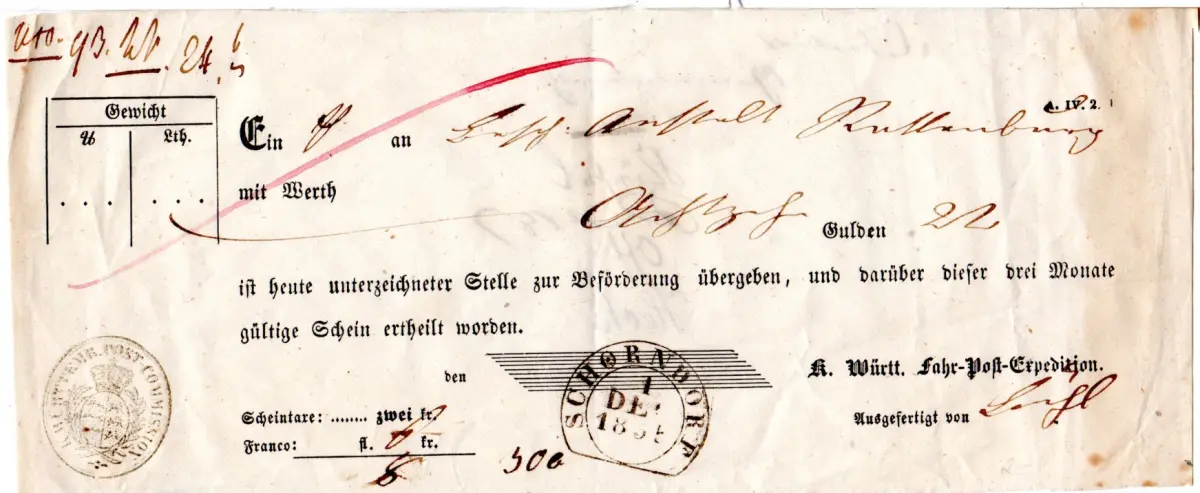 93. 24.
A. IV. 2.
Gewicht
℔ Lth.
. . . . . .
Ein an Besch: Anstalt Rottenburg
mit Werth
Gulden
ist heute unterzeichneter Stelle zur Beförderung übergeben, und darüber dieser drei Monate
gültige Schein ertheilt worden.
K. WÜRTTEMB. POST-COMMISSION
den
SCHORNDORF
1
DEC
185
K. Württ. Fahr-Post-Expedition.
Scheintaxe: ........ zwei kr.
Ausgefertigt von
Franco: fl. kr.
300